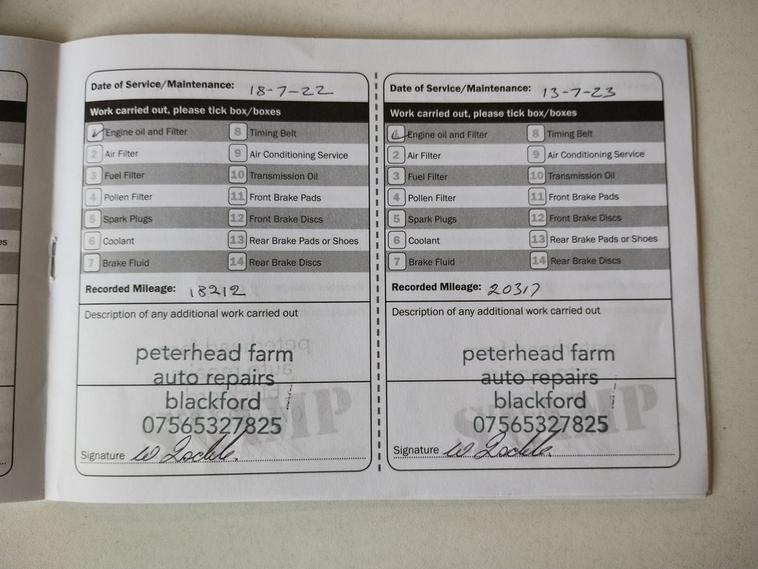 Date of Service/Maintenance: 18-7-22
Work carried out, please tick box/boxes
1 Engine oil and Filter 8 Timing Belt
2 Air Filter 9 Air Conditioning Service
3 Fuel Filter 10 Transmission Oil
4 Pollen Filter 11 Front Brake Pads
5 Spark Plugs 12 Front Brake Discs
6 Coolant 13 Rear Brake Pads or Shoes
7 Brake Fluid 14 Rear Brake Discs
Recorded Mileage: 18212
Description of any additional work carried out
peterhead farm
auto repairs
blackford
07565327825
STAMP
Signature
Date of Service/Maintenance: 13-7-23
Work carried out, please tick box/boxes
1 Engine oil and Filter 8 Timing Belt
2 Air Filter 9 Air Conditioning Service
3 Fuel Filter 10 Transmission Oil
4 Pollen Filter 11 Front Brake Pads
5 Spark Plugs 12 Front Brake Discs
6 Coolant 13 Rear Brake Pads or Shoes
7 Brake Fluid 14 Rear Brake Discs
Recorded Mileage: 20317
Description of any additional work carried out
peterhead farm
auto repairs
blackford
07565327825
STAMP
Signature